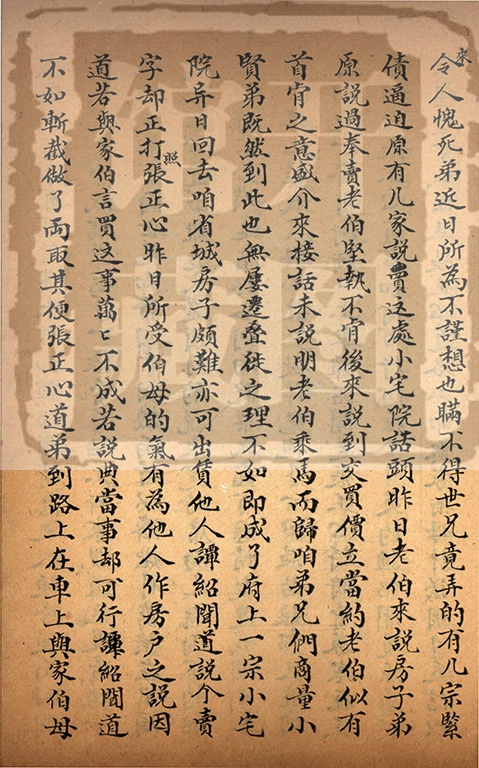 令人愧死弟近日所為不謹想也瞞不得世兄竟弄的有几宗緊
債逼迫原有几家說賣這處小宅院話頭昨日老伯來說房子弟
原說過奉賣老伯堅執不肯後來說到交買價立當約老伯似有
首肯之意盛介來接話未說明老伯乘馬而歸咱弟兄們商量小
賢弟既然到此也無屢遷叠徙之理不如即成了府上一宗小宅
院异日回去咱省城房子頗難亦可出賃他人譚紹聞道說个賣
字却正打照張正心昨日所受伯母的氣有為他人作房户之說因
道若與家伯言買这事萬〻不成若說典當事却可行譚紹聞道
不如斬截做了両取其便張正心道弟到路上在車上與家伯母